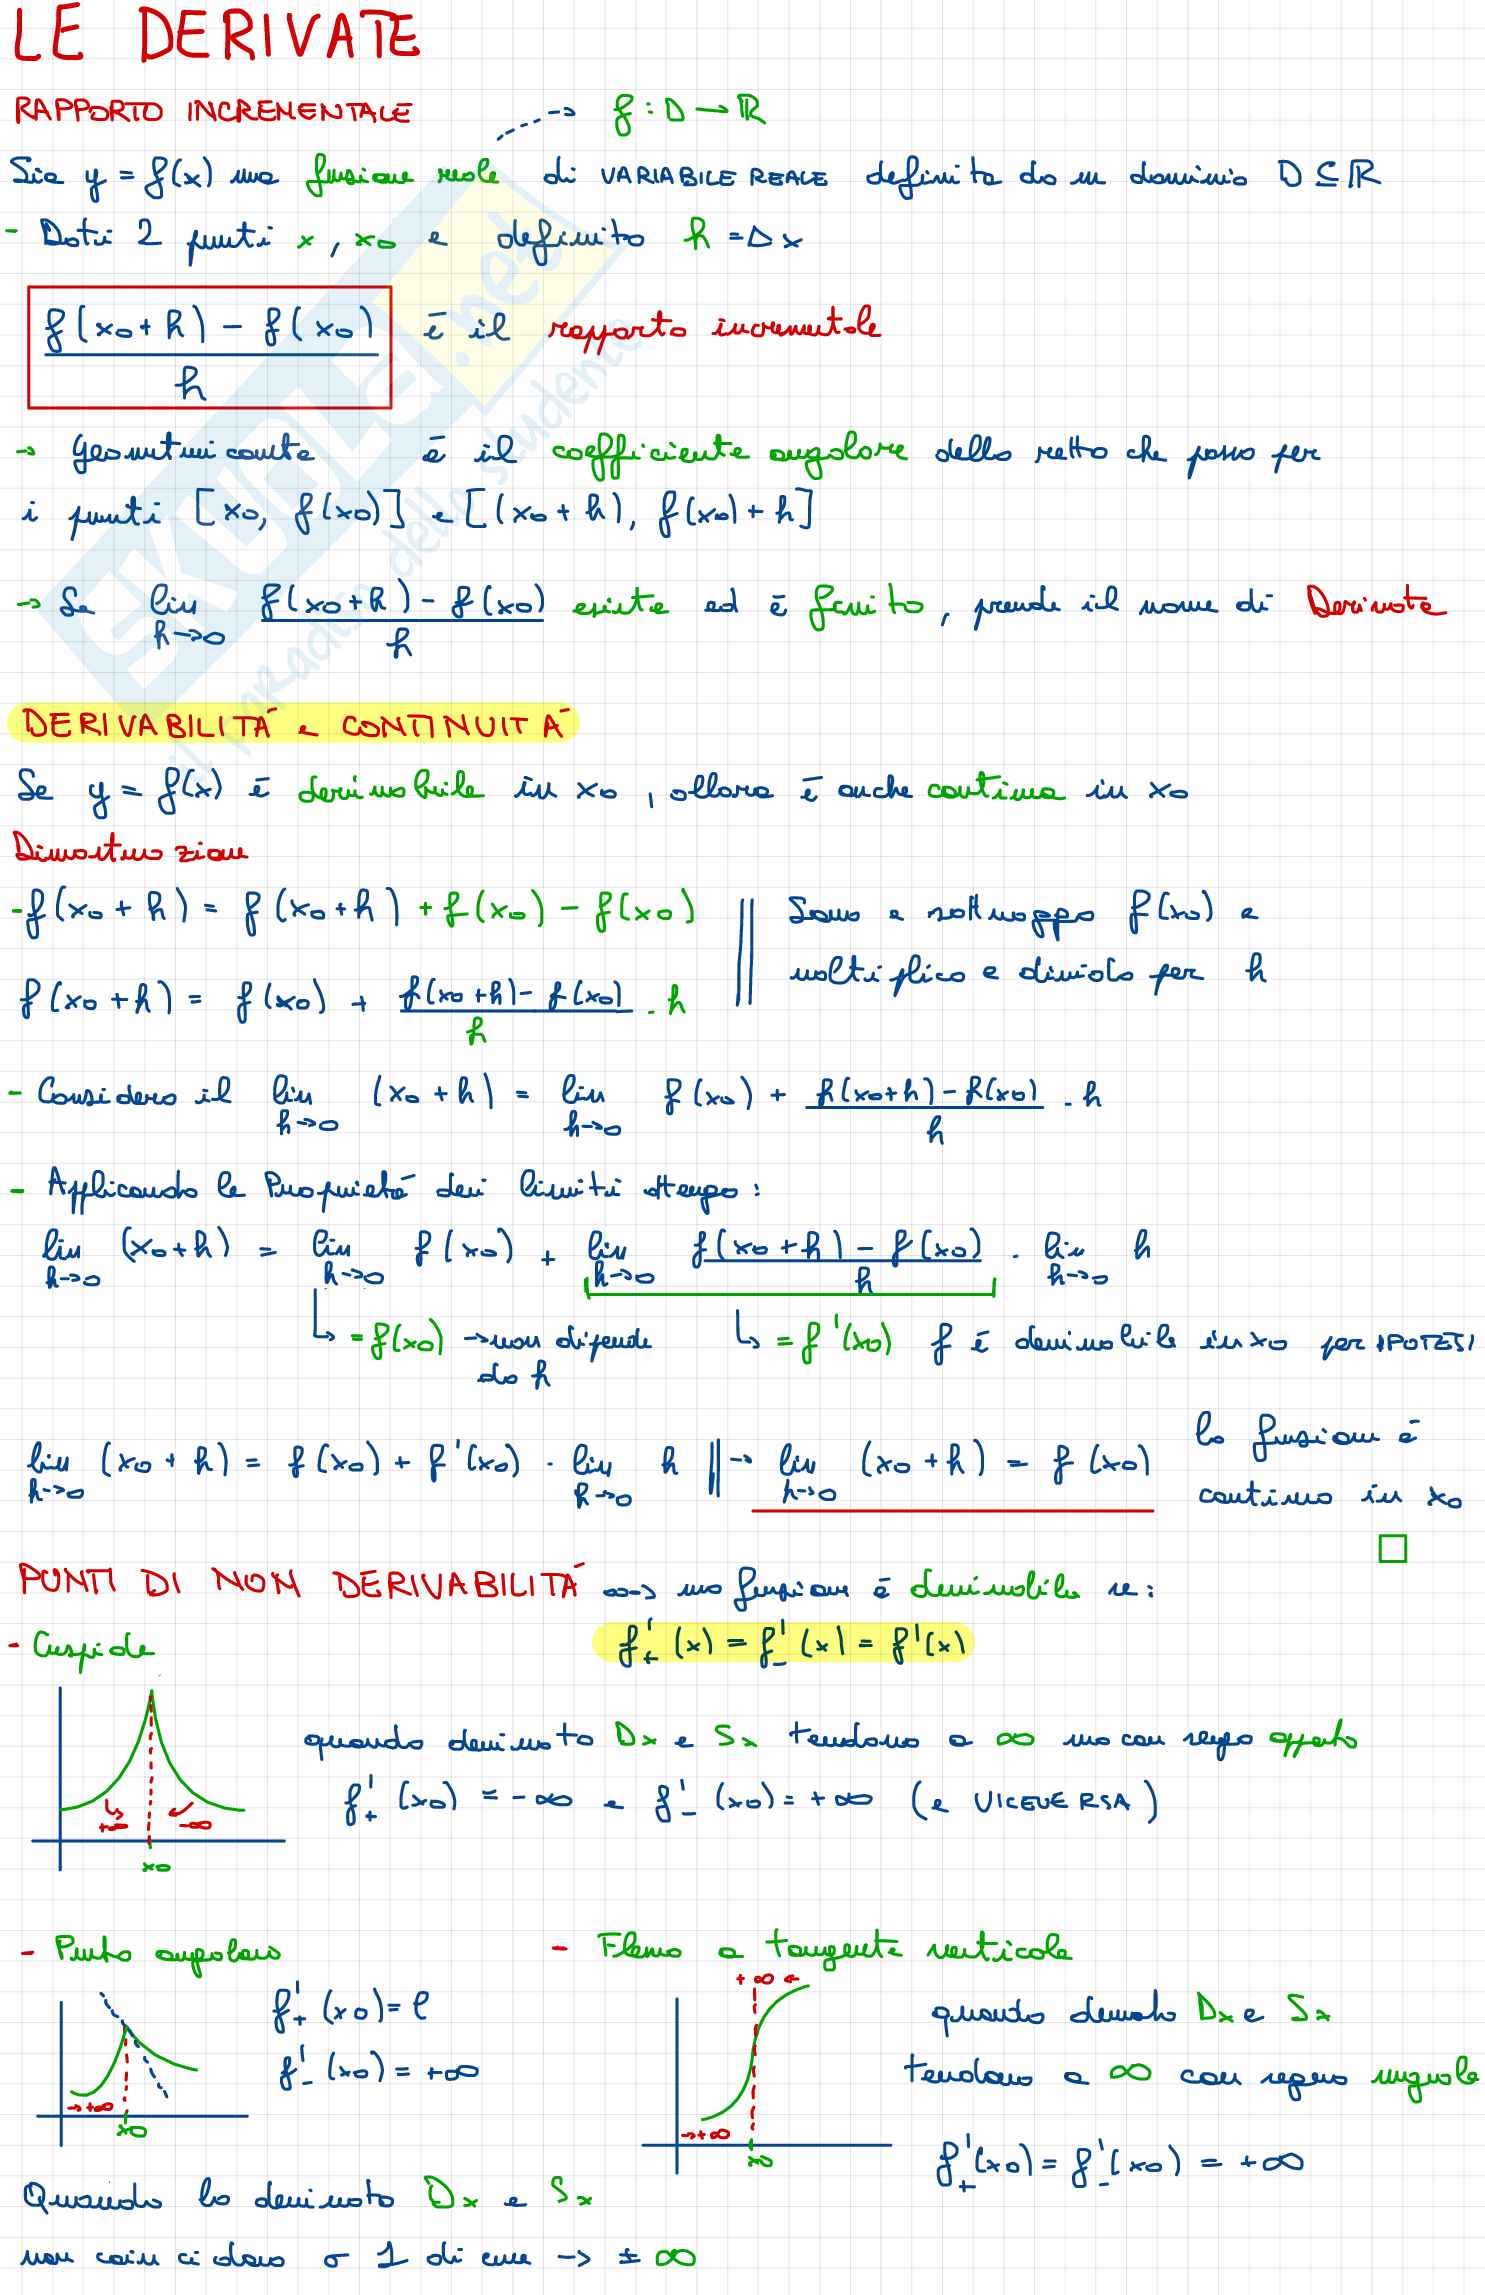 LE DERIVATE
RAPPORTO INCREMENTALE
f : D → ℝ
Sia y = f(x) una funzione reale di VARIABILE REALE definita da un dominio D ⊆ ℝ
- Dati 2 punti x, x₀ e definito h = Δx
f(x₀+h) - f(x₀) / h è il rapporto incrementale
→ Geometricamente è il coefficiente angolare della retta che passa per
i punti [x₀, f(x₀)] e [(x₀+h), f(x₀)+h]
→ Se lim h→0 f(x₀+h) - f(x₀) / h esiste ed è finito, prende il nome di Derivata
DERIVABILITÀ e CONTINUITÀ
Se y = f(x) è derivabile in x₀, allora è anche continua in x₀
Dimostrazione
- f(x₀+h) = f(x₀+h) + f(x₀) - f(x₀)
Sommo e sottraggo f(x₀) e
moltiplico e divido per h
f(x₀+h) = f(x₀) + f(x₀+h) - f(x₀) / h · h
- Considero il lim h→0 (x₀+h) = lim h→0 f(x₀) + f(x₀+h) - f(x₀) / h · h
- Applicando le Proprietà dei limiti ottengo:
lim h→0 (x₀+h) = lim h→0 f(x₀) + lim h→0 f(x₀+h) - f(x₀) / h · lim h→0 h
= f(x₀) → non dipende
da h
= f'(x₀) f è derivabile in x₀ per IPOTESI
lim h→0 (x₀+h) = f(x₀) + f'(x₀) · lim h→0 h || → lim h→0 (x₀+h) = f(x₀)
la funzione è
continua in x₀
PUNTI DI NON DERIVABILITÀ → una funzione è derivabile se:
f'₊(x) = f'₋(x) = f'(x)
- Cuspide
+∞ -∞
x₀
quando derivata Dx e Sx tendono a ∞ ma con segno opposto
f'₊(x₀) = -∞ e f'₋(x₀) = +∞ (e VICEVERSA)
- Punto angoloso
f'₊(x₀) = l
f'₋(x₀) = +∞
→+∞
x₀
Quando la derivata Dx e Sx
non coincidono o 1 di esse → ±∞
- Flesso a tangente verticale
+∞ ←
→+∞
x₀
quando derivata Dx e Sx
tendono a ∞ con segno uguale
f'₊(x₀) = f'₋(x₀) = +∞
SKUOLA.net
il paradiso dello studente